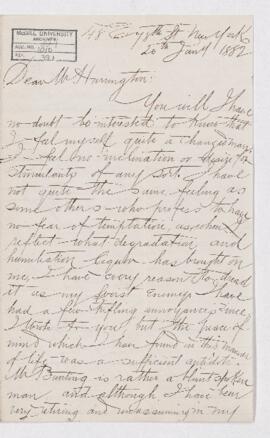 McGILL UNIVERSITY
ARCHIVES
ACC. NO. 1010
REF. 39/1
48 E 78th St New York
20th Jany 1882
Dear Mr Harrington:
You will I have
no doubt be interested to know that
I feel myself quite a changed man.
I feel no inclination or desire for
stimulants of any sort. I have
not quite the same feeling as
some others who profess to have
no fear of temptation, as when I
reflect what degradation and
humiliation liquor has brought on
me, I have every reason to dread
it as my worst enemy. I have
had a few trifling annoyances since
I wrote to you, but the peace of
mind which I have found in this manner
of life was a sufficient antidote.
Mr Bunting is rather a blunt spoken
man and although I have been
very retiring and unassuming in my